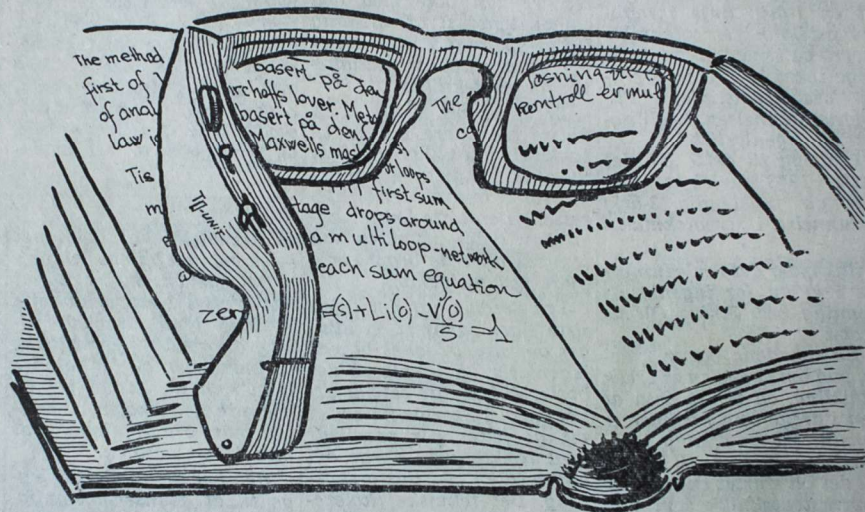 The method
first of
of anal
Law is
Tis
m
zer
TQ-UNIT
basert på den
rchoffs lover. Meto
basert på den
Maxwells mas
or loops
first sum
tage drops around
a multiloop-network
each sum equation
E(s)+Li(0)-V(0)/S -1
The
co
løsning til
kontroll er mul